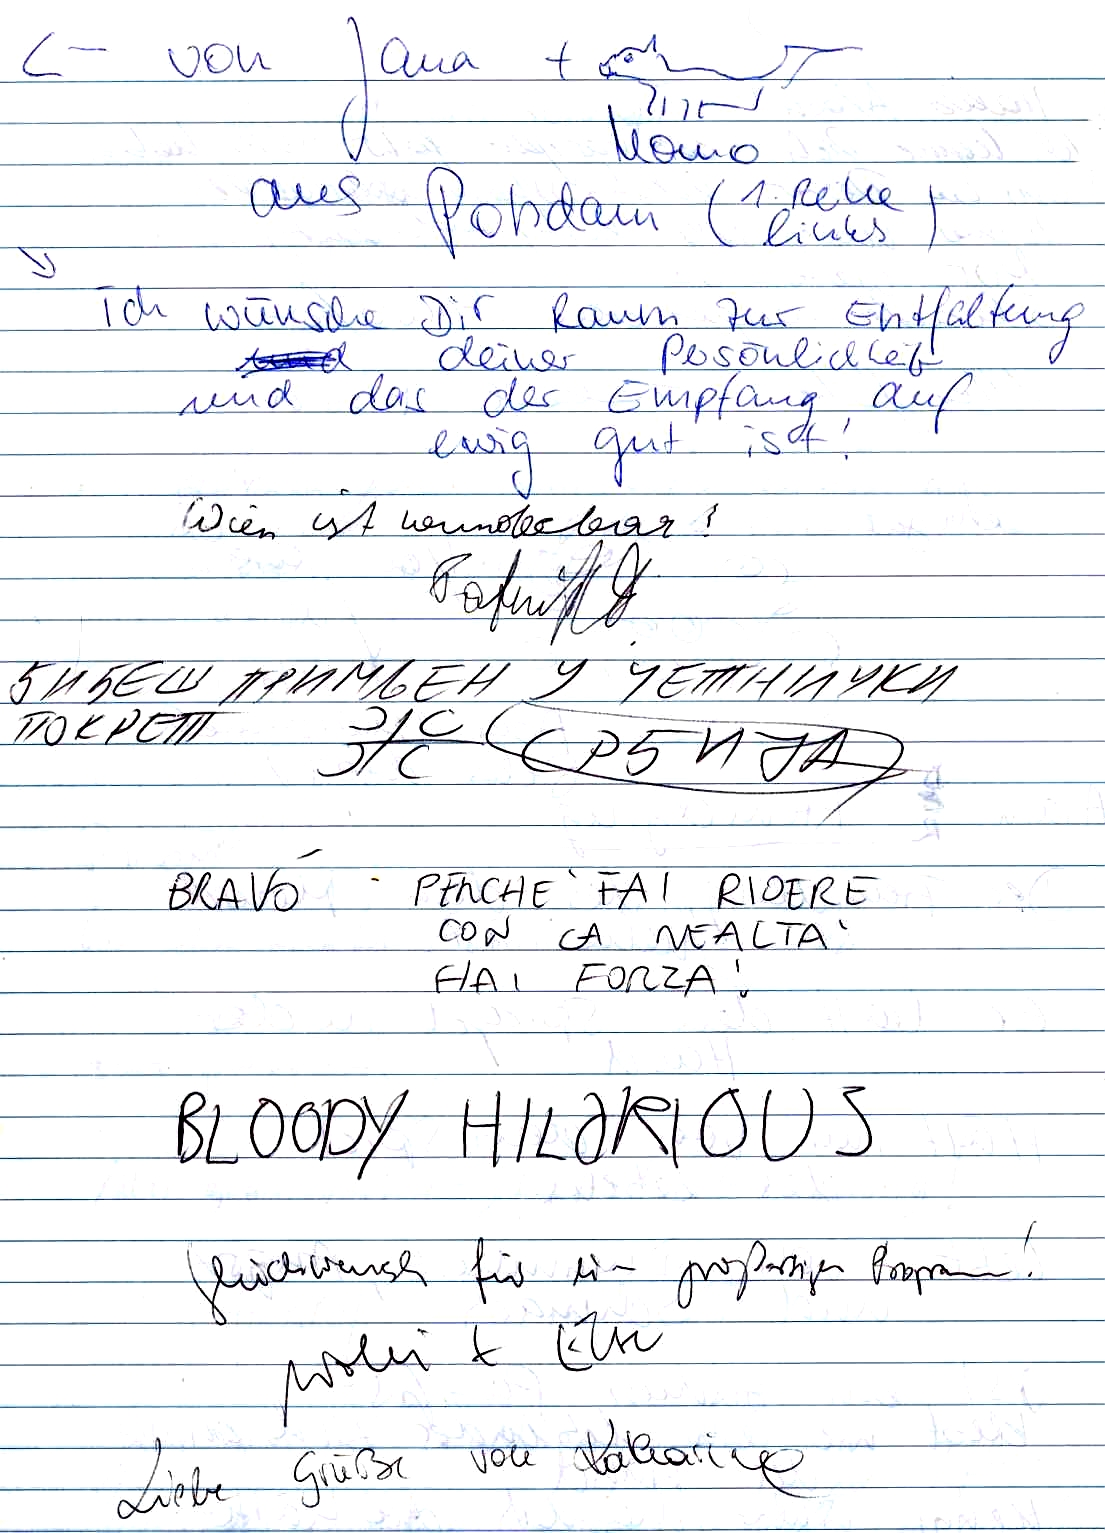 ← von Jana +
Momo
aus Potsdam (1. Reihe
links)
Ich wünsche Dir Raum zur Entfaltung
deiner Persönlichkeit
und das der Empfang auf
ewig gut ist!
Wien ist wunderbar!
БИЋЕШ ПРИМЉЕН У ЧЕТНИЧКИ
ПОКРЕТ СРБИЈА
BRAVÓ - PERCHE` FAI RIDERE
CON LA REALTA`
HAI FORZA!
BLOODY HILARIOUS
Glückwunsch für ein großartiges Programm!
+
Liebe Grüße von Katharina